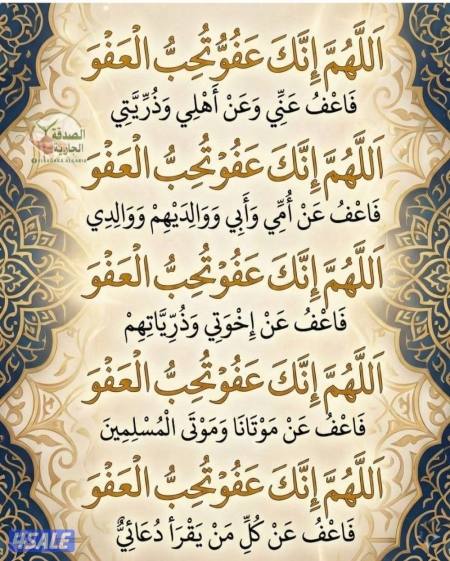 اَللَّهُمَّ إِنَّكَ عَفُوٌّ تُحِبُّ الْعَفْوَ
فَاعْفُ عَنِّي وَعَنْ أَهْلِي وَذُرِّيَّتِي
الصدقة
الجارية
اَللَّهُمَّ إِنَّكَ عَفُوٌّ تُحِبُّ الْعَفْوَ
فَاعْفُ عَنْ أُمِّي وَأَبِي وَوَالِدَيْهِمْ وَوَالِدِي
اَللَّهُمَّ إِنَّكَ عَفُوٌّ تُحِبُّ الْعَفْوَ
فَاعْفُ عَنْ إِخْوَتِي وَذُرِّيَّاتِهِمْ
اَللَّهُمَّ إِنَّكَ عَفُوٌّ تُحِبُّ الْعَفْوَ
فَاعْفُ عَنْ مَوْتَانَا وَمَوْتَى الْمُسْلِمِينَ
اَللَّهُمَّ إِنَّكَ عَفُوٌّ تُحِبُّ الْعَفْوَ
فَاعْفُ عَنْ كُلِّ مَنْ يَقْرَأ دُعَائِيٌّ
4SALE